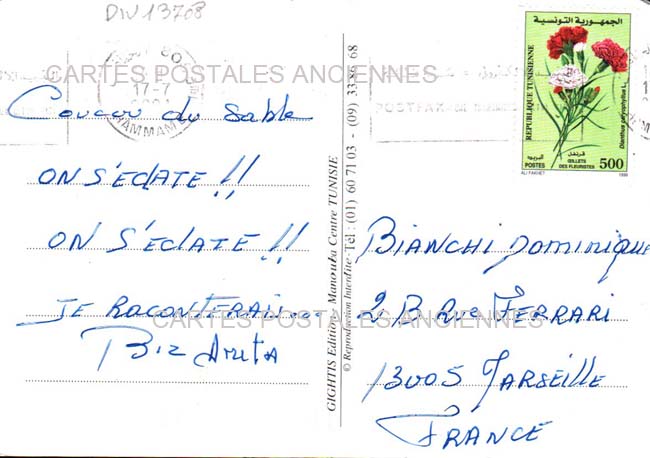 DIV 13708
CARTES POSTALES ANCIENNES
17-7
HAMMAM
Coucou du Sable
ON S'ECLATE !!
ON S'ECLATE !!
JE RACONTERAI...
Biz Anita
GIGHTIS Edition - Manouka Centre TUNISIE
© Reproduction Interdite - Tél : (01) 60 71 03 - (09) 33 86 68
الجمهورية التونسية
REPUBLIQUE TUNISIENNE
Dianthus caryophyllus L.
قرنفل
البريد
POSTES
ŒILLETS
DES FLEURISTES
500
ALI FAKHET
1999
BIANCHI Dominique
2 B Rue FERRARI
CARTES POSTALES ANCIENNES
13005 MARSEILLE
FRANCE